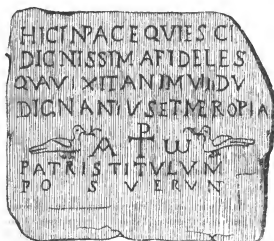 HIC IN PACE QVIESCI
DIGNISSIMA FIDELES
DIGNANTIVS ET MEROPIA
A ☧ ω
PATRIS TITVLVM
POSVERVN